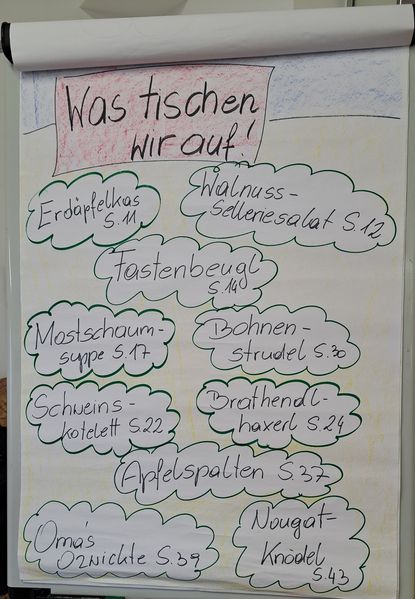 Was tischen
wir auf!
Erdäpfelkas
S.11
Walnuss-
Selleriesalat S.12
Fastenbeugl
S.14
Mostschaum-
suppe S.17
Bohnen-
strudel S.30
Schweins-
kotelett S.22
Brathendl-
haxerl S.24
Apfelspalten S.37
Oma's
Ozwickte S.39
Nougat-
Knödel
S.43